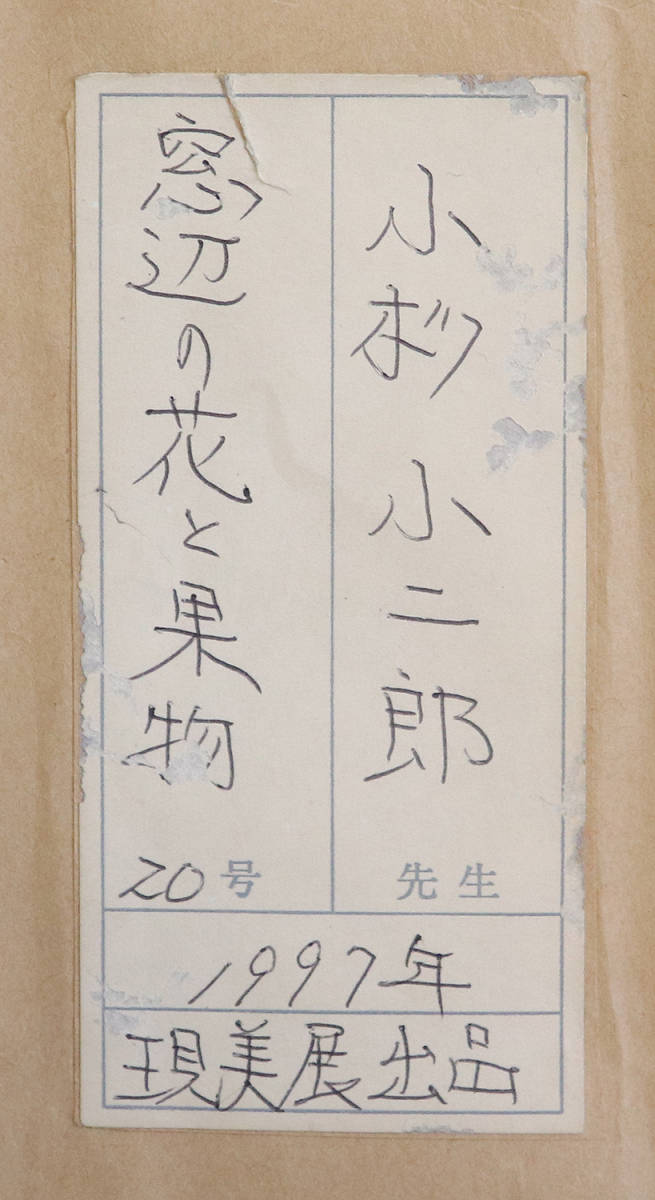 小杉小二郎
先生
窓辺の花と果物
20号
1997年
現美展出品